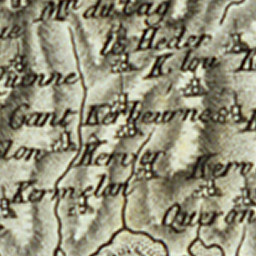 Mⁱⁿ du Cag
le Heder
K. lou
Gant
Kerheurne
lon
Kerver
Kerv
Kermelan
Queran